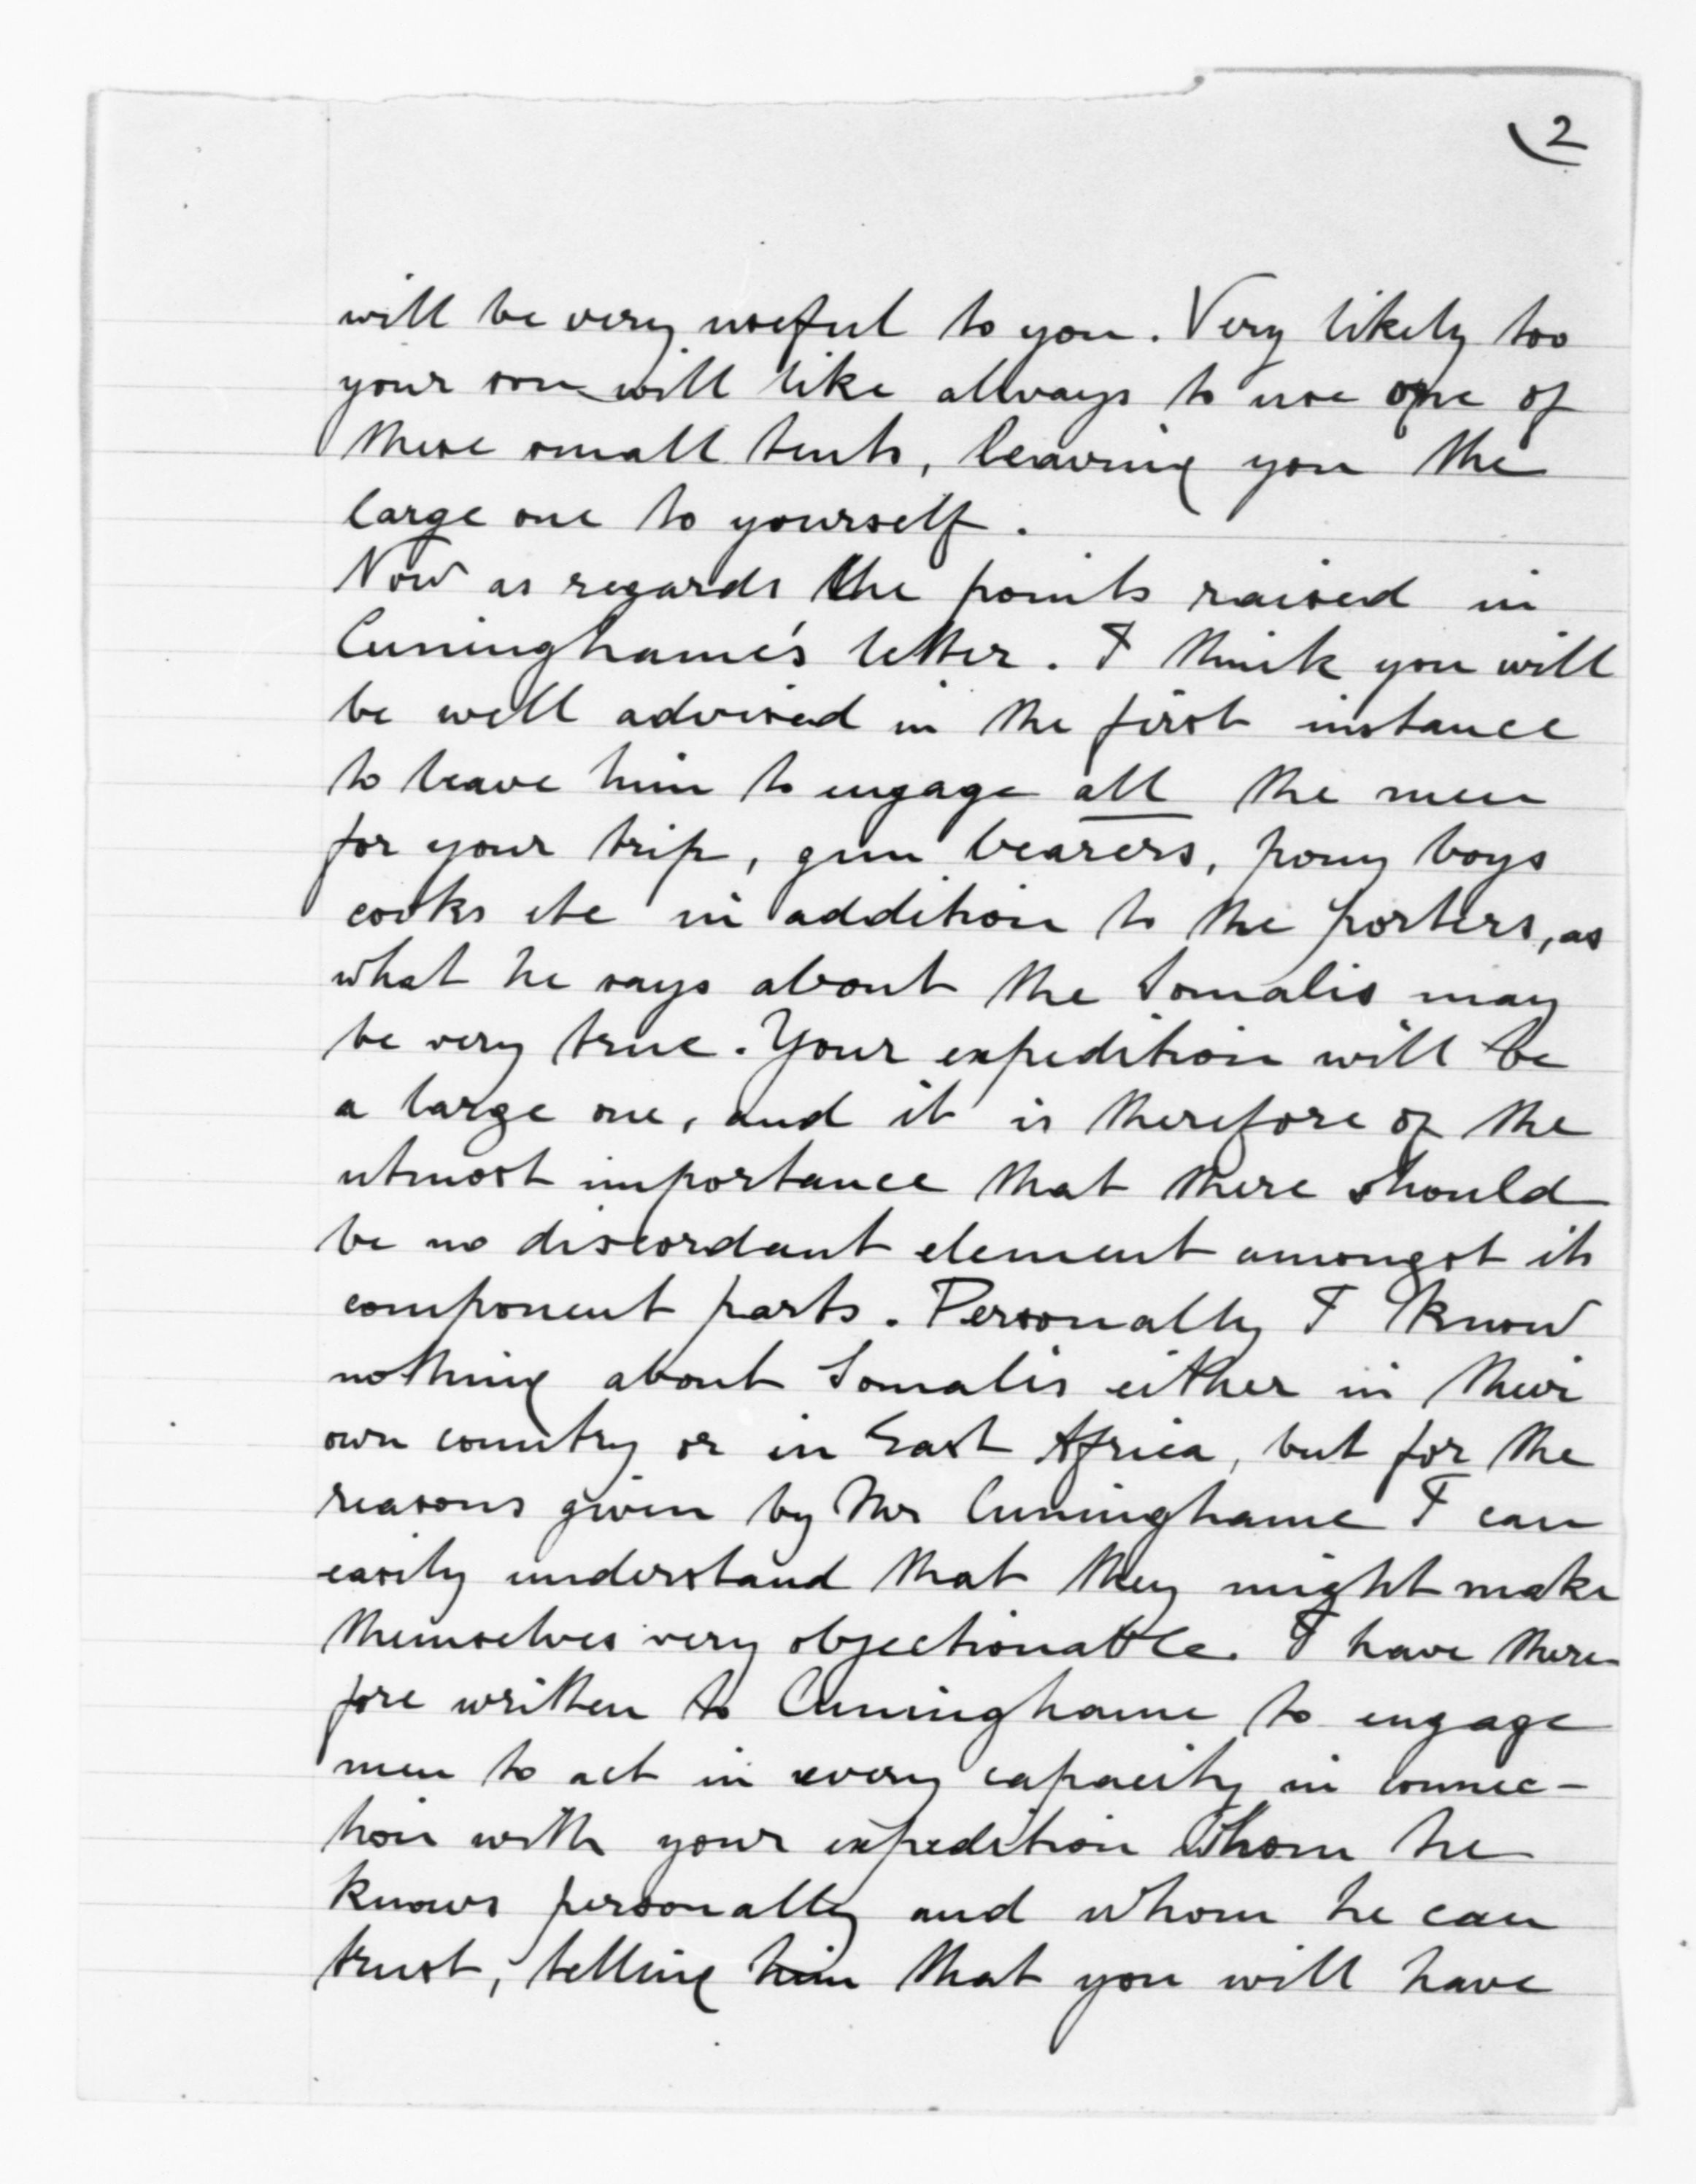 2
will be very useful to you. Very likely too
your son will like always to use one of
these small tents, leaving you the
large one to yourself.
Now as regards the points raised in
Cuninghame's letter. I think you will
be well advised in the first instance
to leave him to engage all the men
for your trip, gun bearers, pony boys
cooks etc in addition to the porters, as
what he says about the Somalis may
be very true. Your expedition will be
a large one, and it is therefore of the
utmost importance that there should
be no discordant element amongst its
component parts. Personally I know
nothing about Somalis either in their
own country or in East Africa, but for the
reasons given by Mr Cuninghame I can
easily understand that they might make
themselves very objectionable. I have there-
fore written to Cuninghame to engage
men to act in every capacity in connec-
tion with your expedition whom he
knows personally and whom he can
trust, telling him that you will have